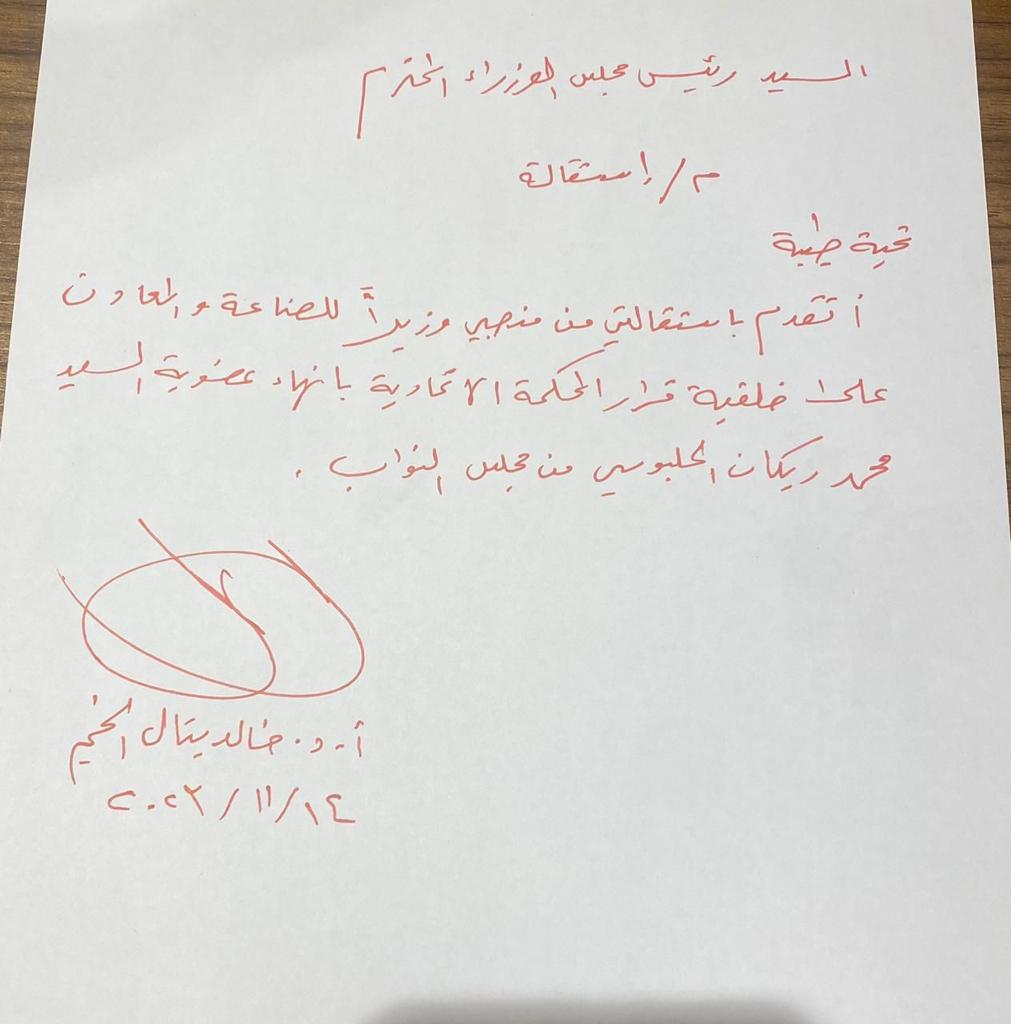 السيد رئيس مجلس الوزراء المحترم
م/ إستقالة
تحية طيبة
أتقدم باستقالتي من منصبي وزيراً للصناعة والمعادن
على خلفية قرار المحكمة الاتحادية بانهاء عضوية السيد
محمد ريكان الحلبوسي من مجلس النواب .
أ.د. خالد بتال النجم
٢٠٢٣/١١/١٤